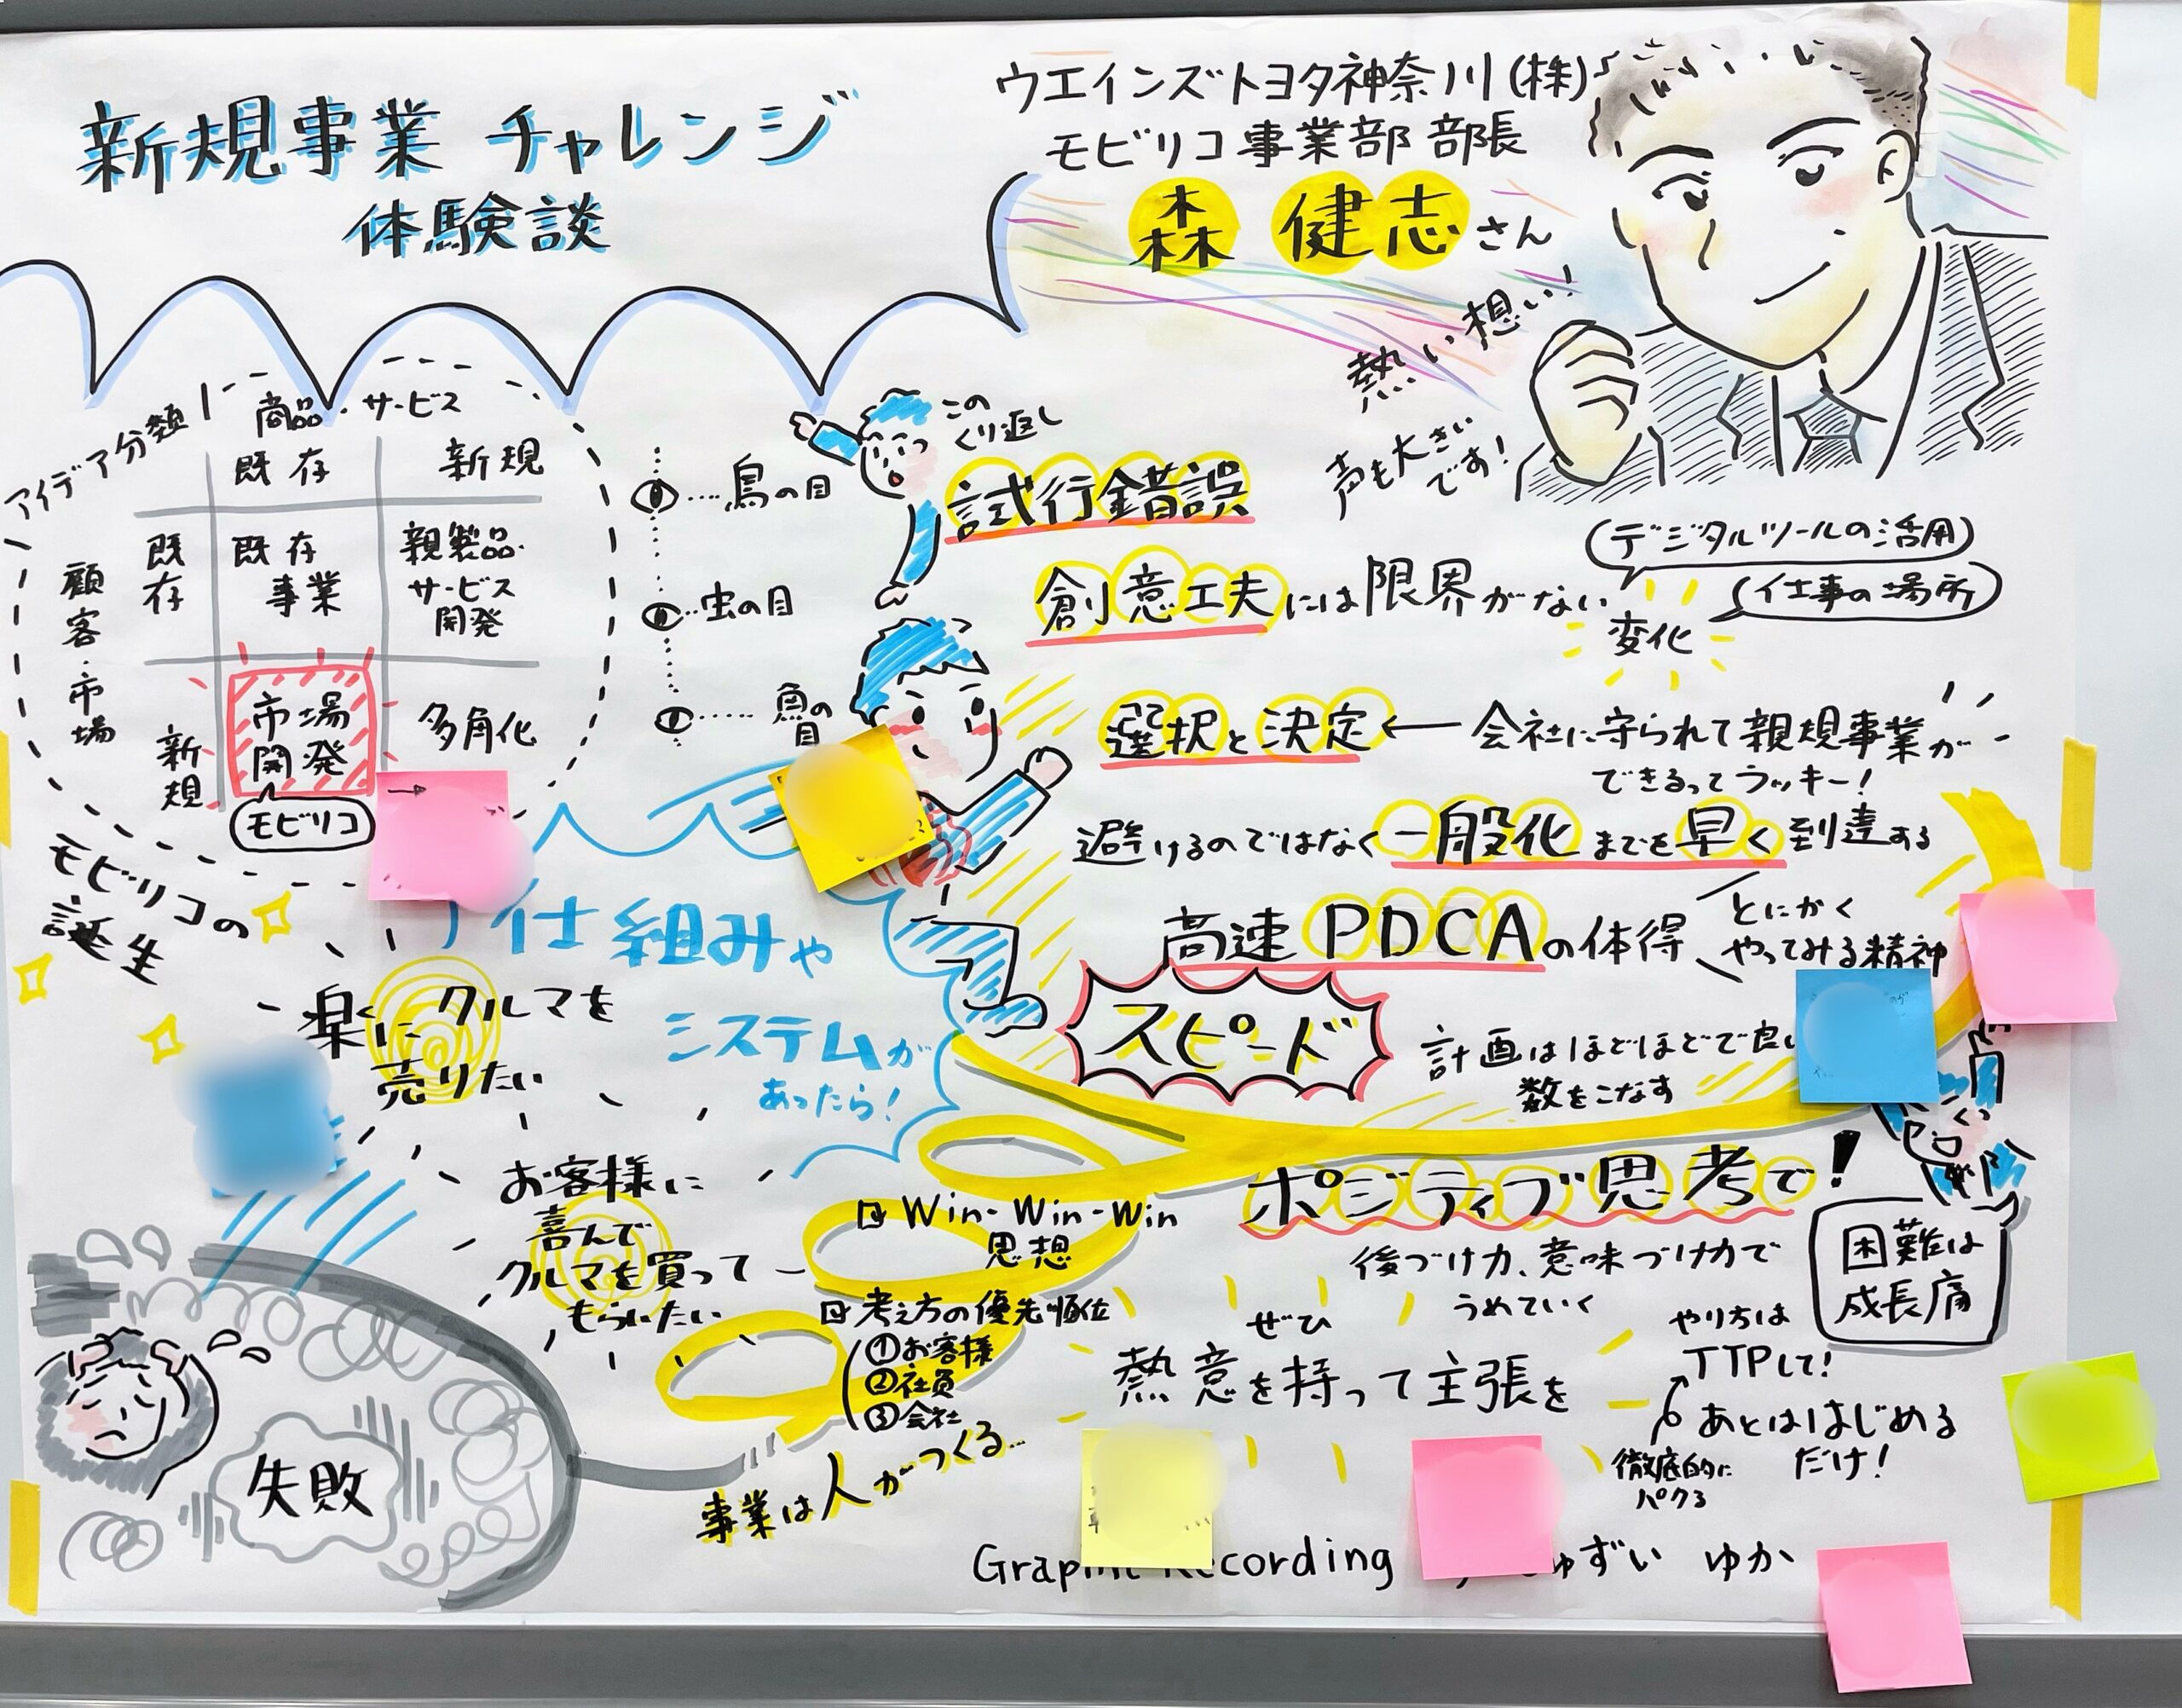 新規事業 チャレンジ
体験談
ウエインズトヨタ神奈川(株)
モビリコ事業部 部長
森 健志さん
熱い想い!
声も大きい
です!
アイデア分類
商品・サービス
既存
新規
顧客・市場
既存
既存
事業
親製品・
サービス
開発
新規
市場
開発
多角化
モビリコ
鳥の目
虫の目
魚の
目
この
くり返し
試行錯誤
創意工夫には限界がない
デジタルツールの活用
仕事の場所
変化
選択と決定←会社に守られて親規事業が
できるってラッキー!
避けるのではなく一般化までを早く到達する
高速PDCAの体得
とにかく
やってみる精神
スピード
計画はほどほどで良い
数をこなす
モビリコの
誕生
楽にクルマを
売りたい
仕組みや
システムが
あったら!
お客様に
喜んで
クルマを買って
もらいたい
Win-Win-Win
思想
考え方の優先順位
①お客様
②社員
③会社
事業は人がつくる…
失敗
ポジティブ思考で!
後づけ力、意味づけ力で
うめていく
困難は
成長痛
ぜひ
熱意を持って主張を
やり方は
TTPして!
あとははじめる
だけ!
徹底的に
パクる
Graphic Recording
ゅずい ゆか